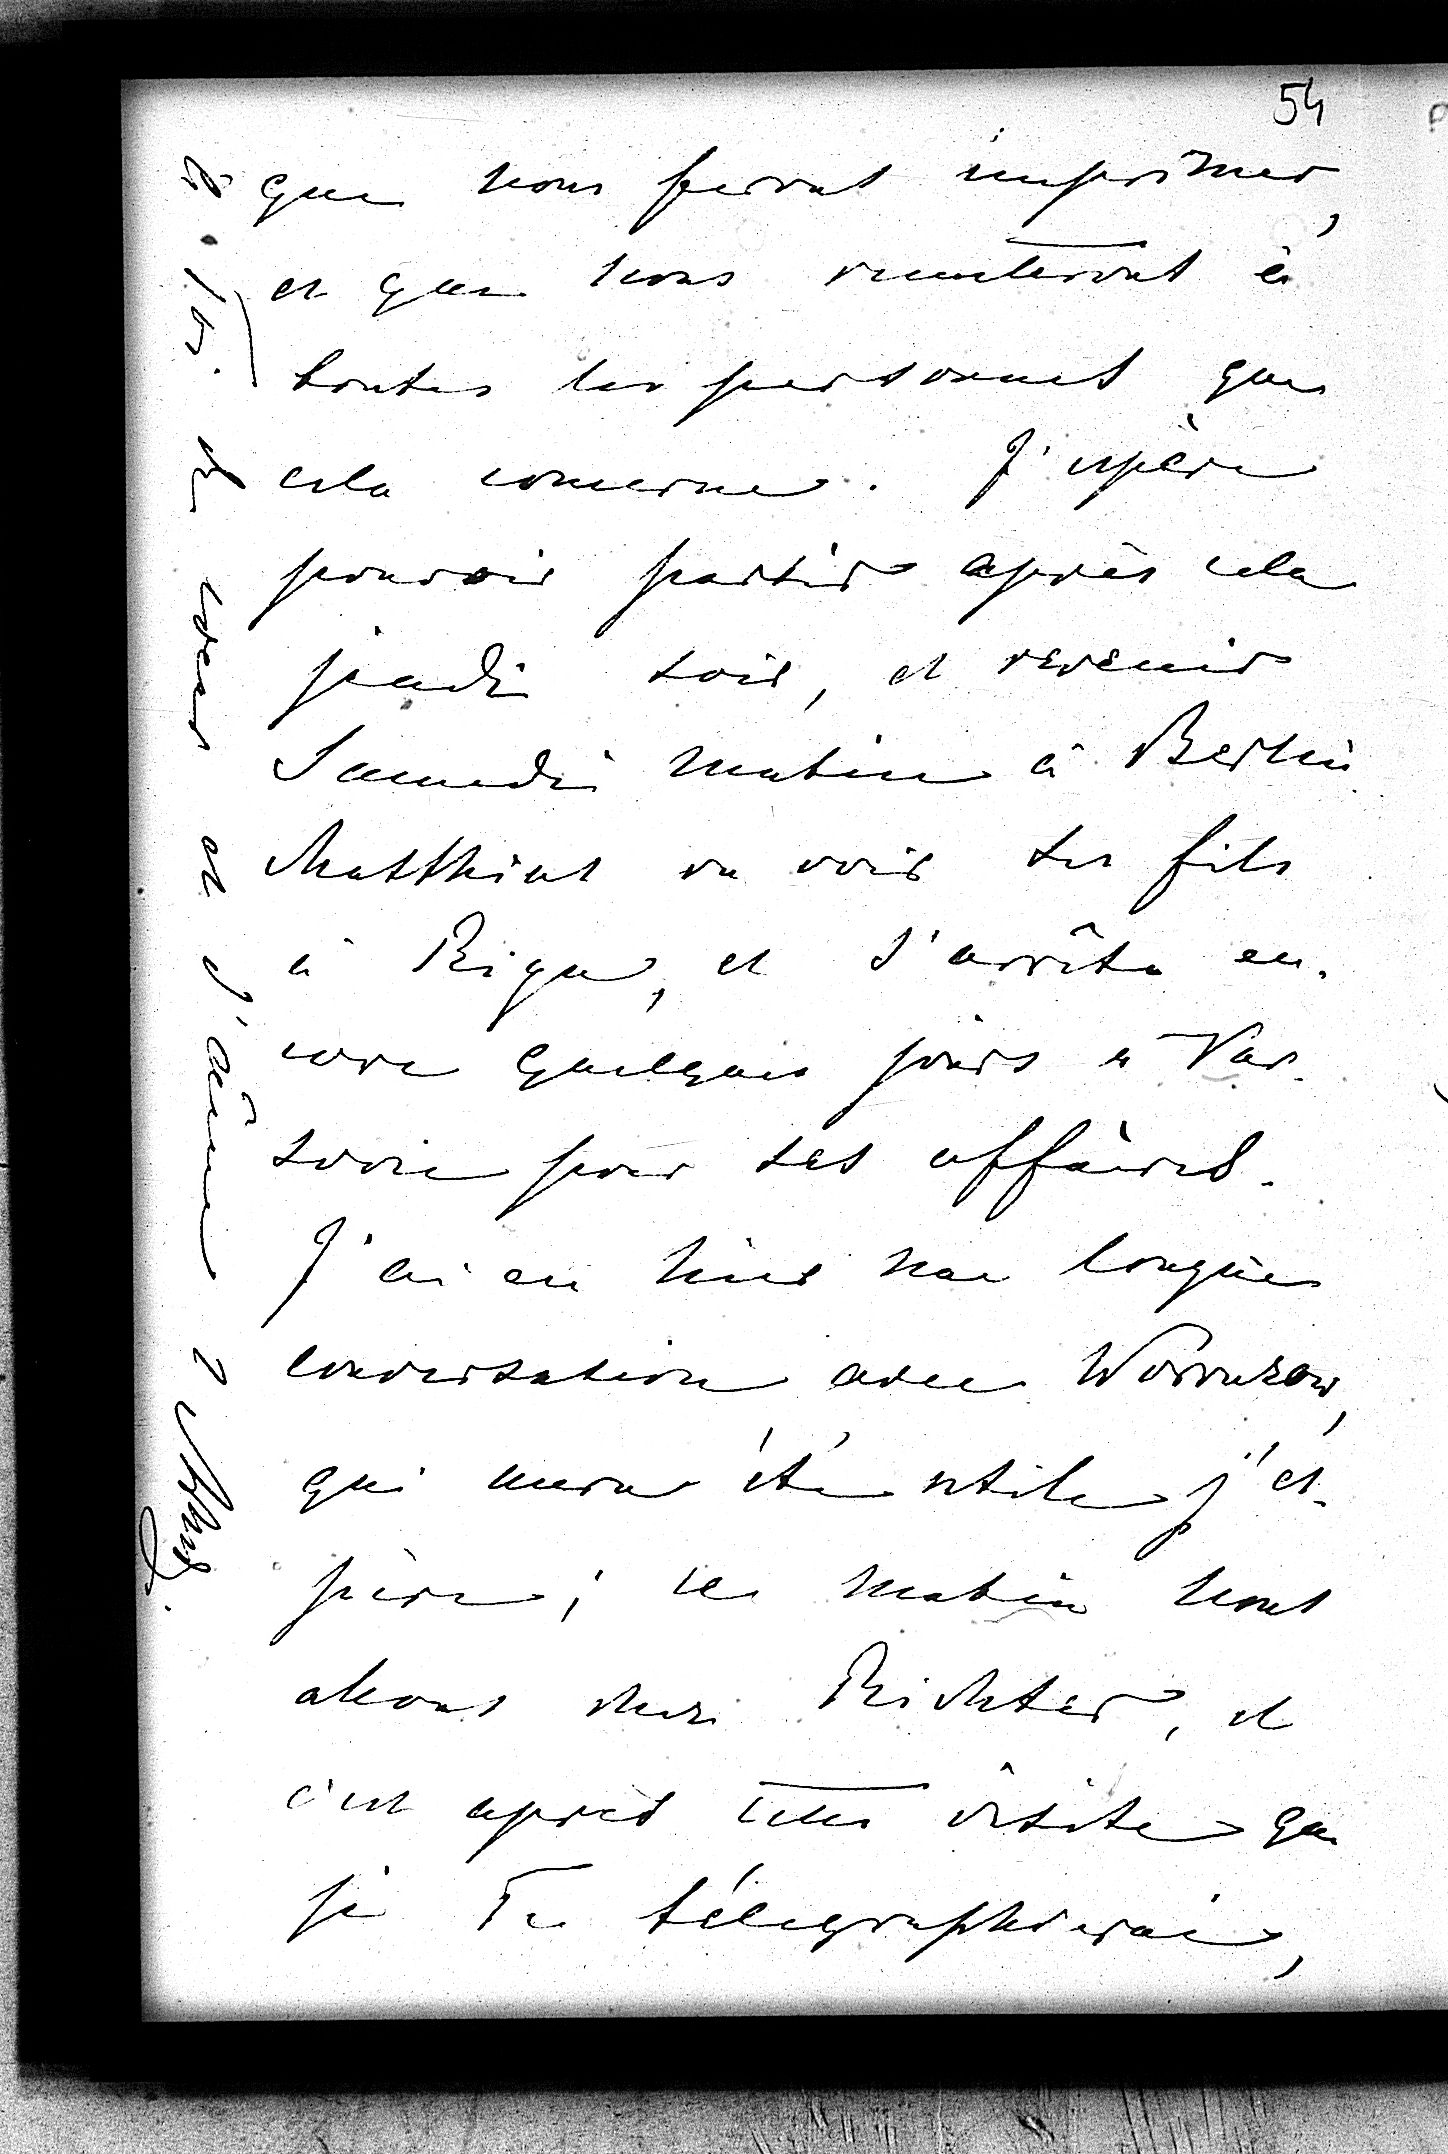 54
que nous ferons imprimer,
et que nous remettrons à
toutes les personnes que
cela concerne. J'espère
pouvoir partir après cela
jeudi soir, et revenir
Samedi matin à Berlin.
Matthias va voir ses fils
à Riga, et s'arrête en-
core quelques jours à Var-
sovie pour ses affaires.
J'ai eu hier une longue
conversation avec Woronzow,
qui aura été utile j'es-
père; ce matin nous
allons chez Richter, et
c'est après cette visite que
je Te télégraphierai,
à Toi de cœur et d'âme